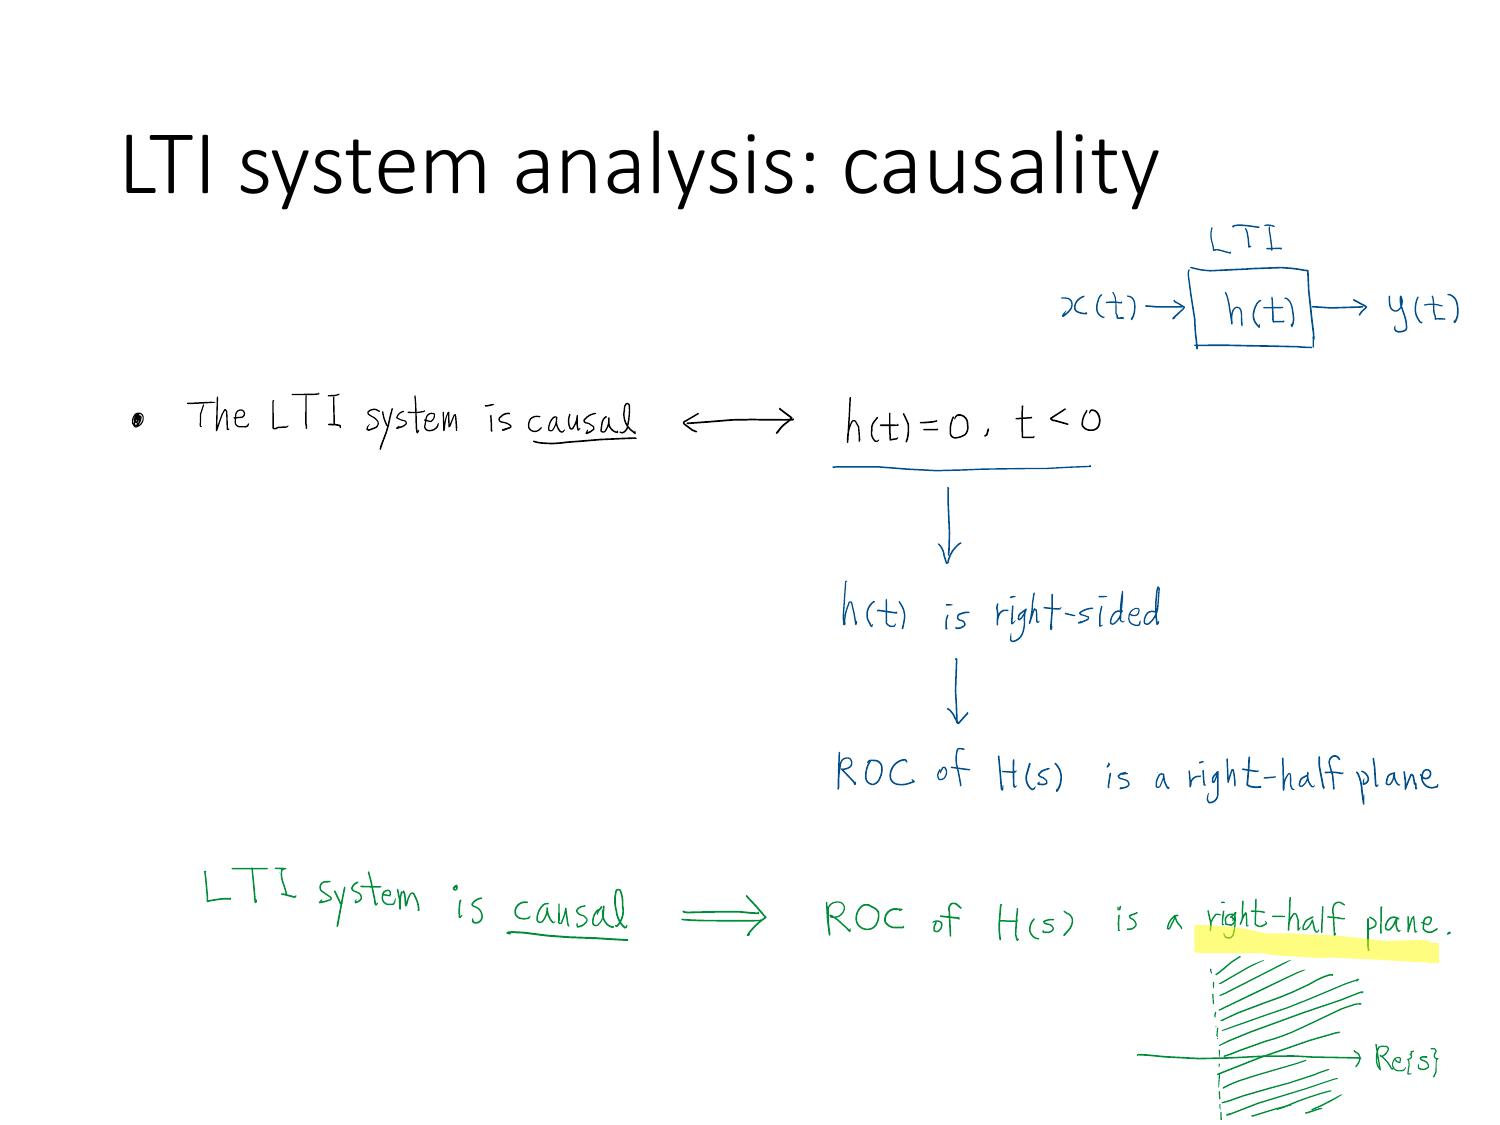 LTI system analysis: causality
LTI
x(t) → h(t) → y(t)
• The LTI system is causal ↔ h(t) = 0, t < 0
↓
h(t) is right-sided
↓
ROC of H(s) is a right-half plane
LTI system is causal ⟹ ROC of H(s) is a right-half plane.
Re{s}